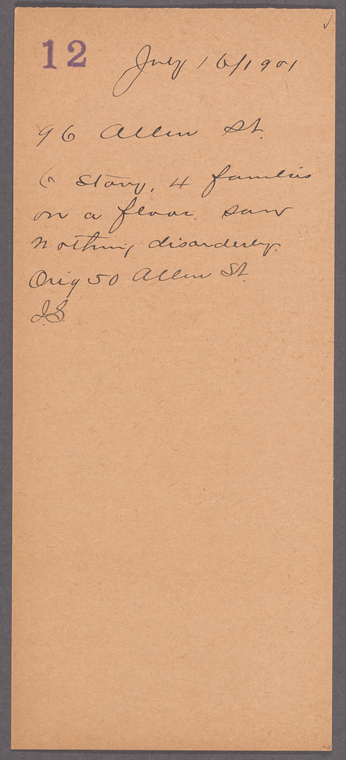 12
July 16/1901
96 Allen St.
6 story, 4 families
on a floor. saw
nothing disorderly.
Orig 50 Allen St.